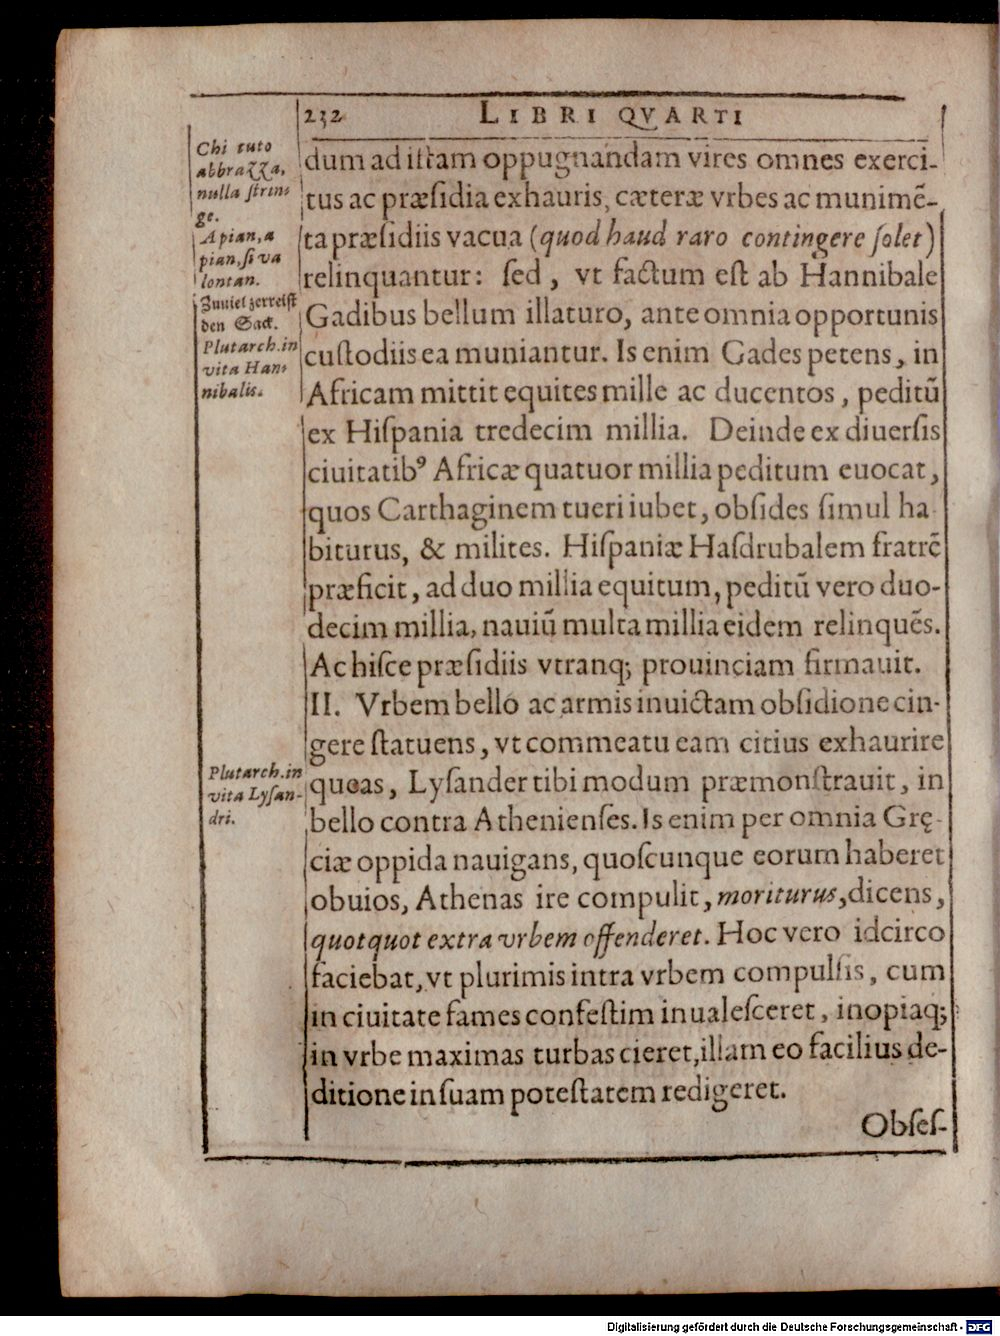 232 LIBRI QVARTI
Chi tuto
abbrazza,
nulla ſtrin-
ge.
Apian, a
pian, ſi va
lontan.
Zuuiel zerreiſt
den Sack.
Plutarch. in
vita Han-
nibalis.
dum ad iſtam oppugnandam vires omnes exerci-
tus ac præſidia exhauris, cæteræ vrbes ac munimē-
ta præſidiis vacua (quod haud raro contingere ſolet)
relinquantur: ſed, vt factum eſt ab Hannibale
Gadibus bellum illaturo, ante omnia opportunis
cuſtodiis ea muniantur. Is enim Gades petens, in
Africam mittit equites mille ac ducentos, peditū
ex Hiſpania tredecim millia. Deinde ex diuerſis
ciuitatibꝰ Africæ quatuor millia peditum euocat,
quos Carthaginem tueri iubet, obſides ſimul ha
biturus, & milites. Hiſpaniæ Haſdrubalem fratrē
præficit, ad duo millia equitum, peditū vero duo-
decim millia, nauiū multa millia eidem relinquēs.
Ac hiſce præſidiis vtranq; prouinciam firmauit.
II. Vrbem bello ac armis inuictam obſidione cin-
gere ſtatuens, vt commeatu eam citius exhaurire
queas, Lyſander tibi modum præmonſtrauit, in
bello contra Athenienſes. Is enim per omnia Grę-
ciæ oppida nauigans, quoſcunque eorum haberet
obuios, Athenas ire compulit, moriturus, dicens,
quotquot extra vrbem offenderet. Hoc vero idcirco
faciebat, vt plurimis intra vrbem compulſis, cum
in ciuitate fames confeſtim inualeſceret, inopiaq;
in vrbe maximas turbas cieret, illam eo facilius de-
ditione in ſuam poteſtatem redigeret.
Plutarch. in
vita Lyſan-
dri.
Obſeſ-
Digitalisierung gefördert durch die Deutsche Forschungsgemeinschaft - DFG